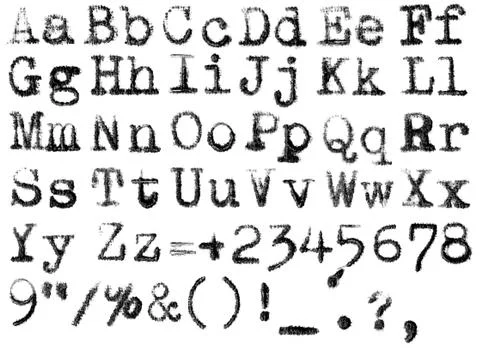 Aa Bb Cc Dd Ee Ff
Gg Hh Ii Jj Kk Ll
Mm Nn Oo Pp Qq Rr
Ss Tt Uu Vv Ww Xx
Yy Zz=+2345678
9"/%&()!_.?,